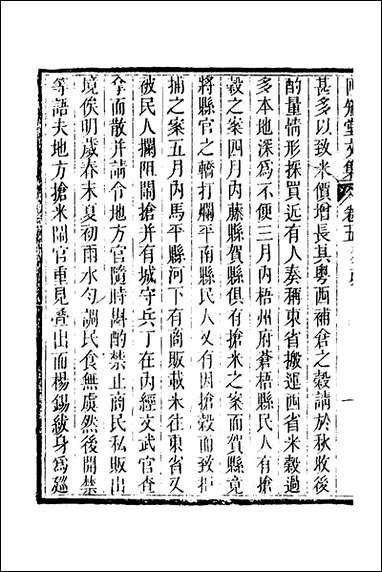 甚多以致米價增長其粵西補倉之穀請於秋收後
酌量情形採買近有人奏稱東省搬運西省米穀過
多本地深爲不便三月內梧州府蒼梧縣民人有搶
穀之案四月內藤縣賀縣俱有搶米之案而賀縣竟
將縣官之轎打爛平南縣民人又有因搶穀而致拒
捕之案五月內馬平縣河下有商販載米往東省又
被民人攔阻鬧搶并有城守兵丁在內經文武官查
拿而散并請令地方官隨時斟酌禁止商民私販出
境俟明歲春末夏初雨水勻調民食無虞然後開禁
等語夫地方搶米鬧官重見疊出而楊錫紱身爲廵